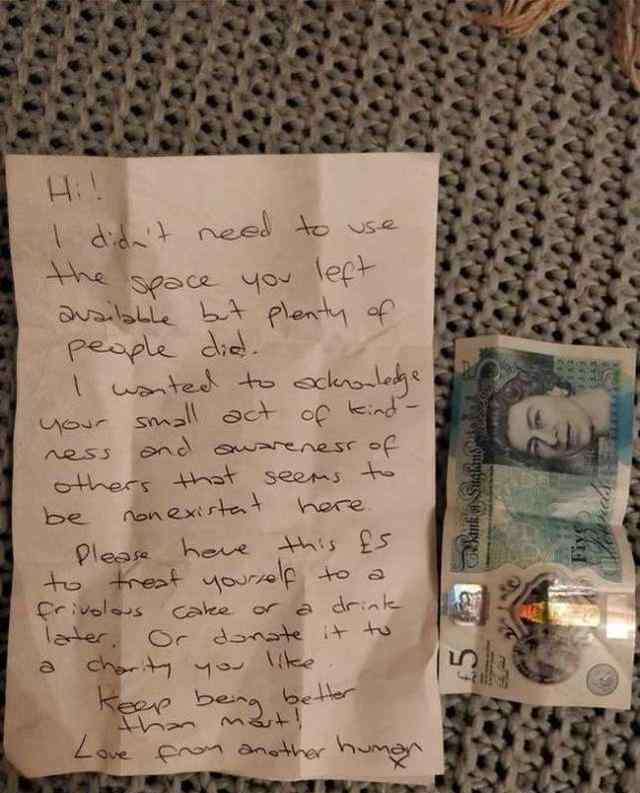 Hi!
I didn't need to use
the space you left
available but plenty of
people did.
I wanted to acknowledge
your small act of kind-
ness and awareness of
others that seems to
be nonexistent here.
Please have this £5
to treat yourself to a
frivolous cake or a drink
later. Or donate it to
a charity you like.
Keep being better
than most!
Love from another human
x
Bank of England
Five
£5